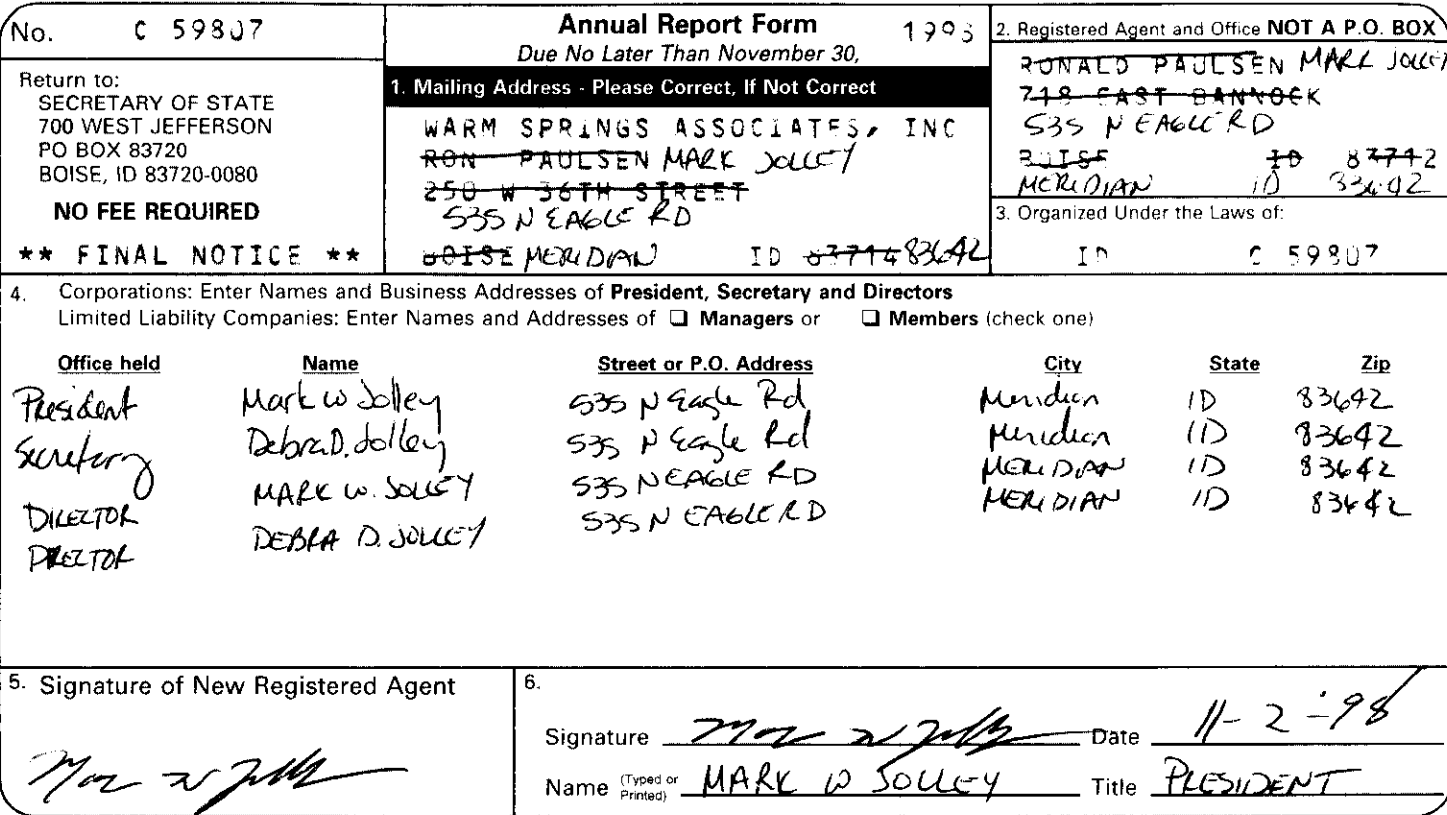 No. C 59807
Annual Report Form 1998
Due No Later Than November 30,
Return to:
SECRETARY OF STATE
700 WEST JEFFERSON
PO BOX 83720
BOISE, ID 83720-0080
NO FEE REQUIRED
** FINAL NOTICE **
1. Mailing Address - Please Correct, If Not Correct
WARM SPRINGS ASSOCIATES, INC
RON PAULSEN MARK JOLLEY
250 W 36TH STREET
535 N EAGLE RD
BOISE MERIDIAN ID 83714 83642
2. Registered Agent and Office NOT A P.O. BOX
RONALD PAULSEN MARK JOLLEY
718 EAST BANNOCK
535 N EAGLE RD
BOISE ID 83712
MERIDIAN ID 83642
3. Organized Under the Laws of:
ID C 59807
4. Corporations: Enter Names and Business Addresses of President, Secretary and Directors
Limited Liability Companies: Enter Names and Addresses of ❑ Managers or ❑ Members (check one)
Office held Name Street or P.O. Address City State Zip
President Mark W Jolley 535 N Eagle Rd Meridian ID 83642
Secretary Debra D. Jolley 535 N Eagle Rd Meridian ID 83642
DIRECTOR MARK W. JOLLEY 535 N EAGLE RD MERIDIAN ID 83642
DIRECTOR DEBRA D. JOLLEY 535 N EAGLE RD MERIDIAN ID 83642
5. Signature of New Registered Agent
6.
Signature Date 11-2-98
Name (Typed or Printed) MARK W JOLLEY Title PRESIDENT